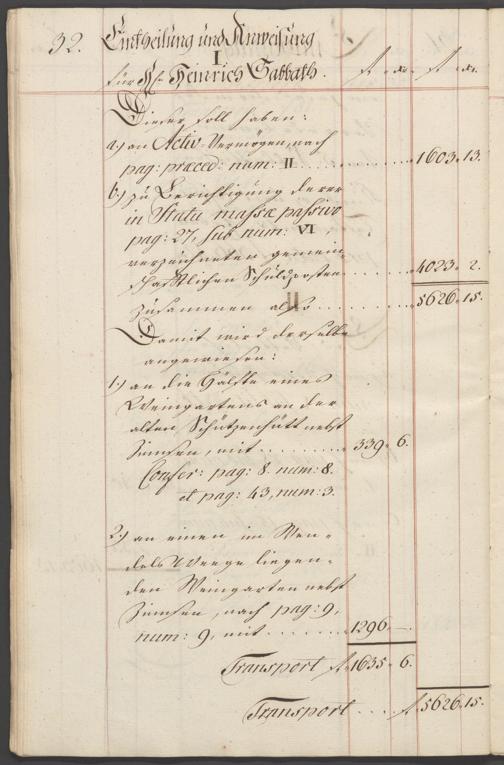 32. Eintheilung und Anweisung
I
für H: Heinrich Sabbath. f. xr. f. xr.
Dieser soll haben:
a.) an Activ-Vermögen, nach
pag: præced: num: II . . . 1603. 13.
b.) zu Berichtigung derer
in Statu massæ passivo
pag: 27, sub num: VI,
verzeichneten gemein-
schaftlichen Schuldposten . . . 4023. 2.
zusammen also . . . 5626. 15.
II
Damit wird derselbe
angewiesen:
1.) an die Hälfte eines
Weingartens an der
alten Schützenhütt nebst
Zimsen, mit . . . 339. 6.
Confer: pag: 8. num: 8.
et pag: 43, num: 3.
2.) an einen im Wen-
dels Weege liegen-
den Weingarten nebst
Zimsen, nach pag: 9,
num: 9, mit . . . 1296. —.
Transport f. 1635. 6.
Transport . . . f. 5626. 15.